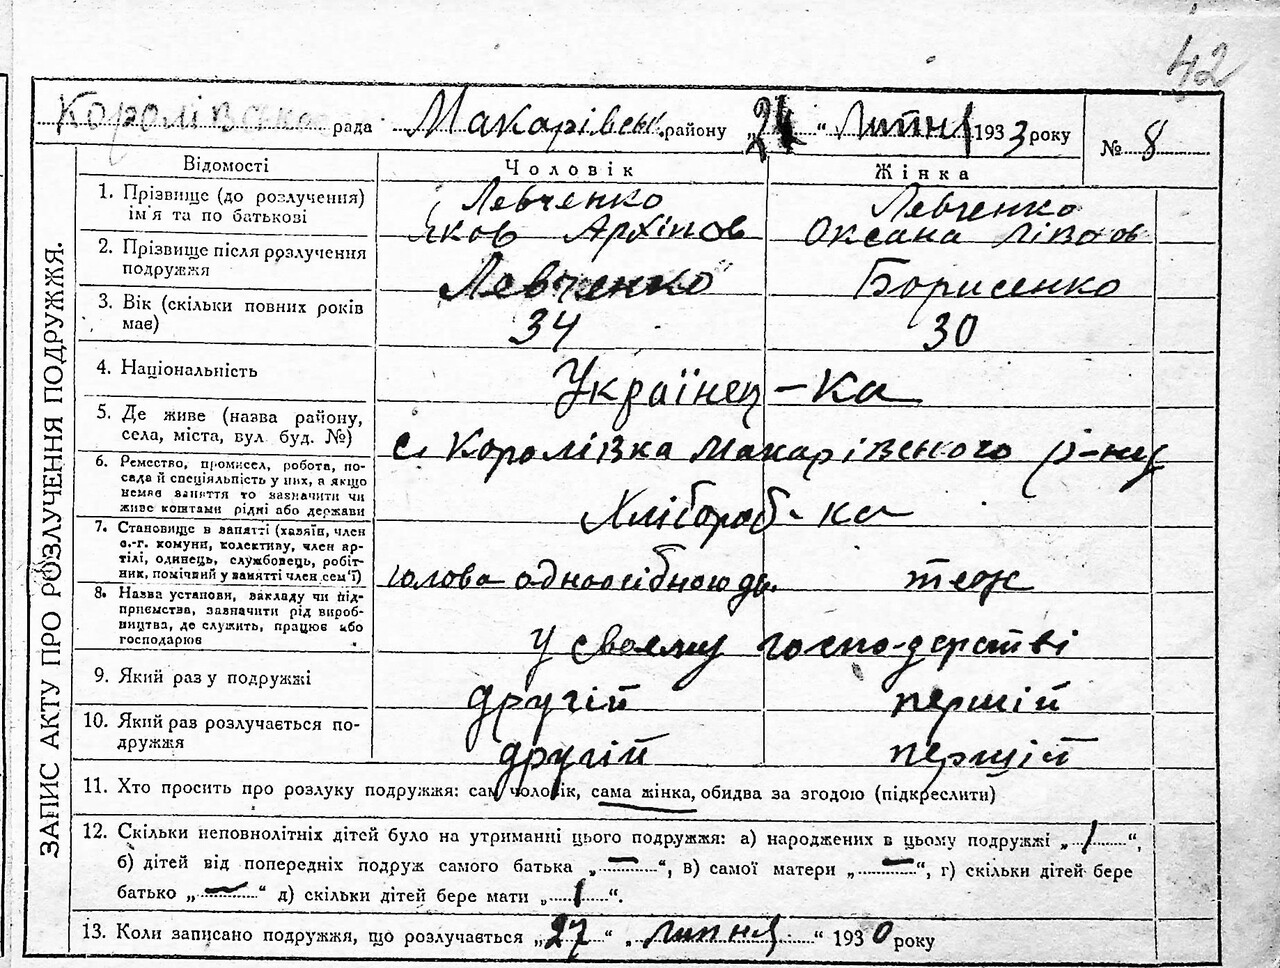 42
Королівська рада Макарівськ. району „24“ Липня 1933 року № 8
ЗАПИС АКТУ ПРО РОЗЛУЧЕННЯ ПОДРУЖЖЯ.
Відомості Чоловік Жінка
1. Прізвище (до розлучення) Левченко Левченко
ім'я та по батькові Яков Архіпов Оксана
2. Прізвище після розлучення
подружжя Левченко Борисенко
3. Вік (скільки повних років
має) 34 30
4. Національність Українец-ка
5. Де живе (назва району,
села, міста, вул. буд. №) с. Королівка Макарівського р-ну
6. Ремество, промисел, робота, по-
сада й спеціяльність у них, а якщо
немає заняття то зазначити чи
живе коштами рідні або держави Хлібороб-ка
7. Становище в занятті (хазяїн, член
с.-г. комуни, колективу, член ар-
тілі, одинець, службовець, робіт-
ник, помічний у занятті член сем'ї) голова одноосібною дв. теж
8. Назва установи, закладу чи під-
приємства, зазначити рід вироб-
ництва, де служить, працює або
господарює у своєму господарстві
9. Який раз у подружжі другій першій
10. Який раз розлучається по-
дружжя другій першій
11. Хто просить про розлуку подружжя: сам чоловік, сама жінка, обидва за згодою (підкреслити)
12. Скільки неповнолітніх дітей було на утриманні цього подружжя: а) народжених в цьому подружжі „1“,
б) дітей від попередніх подруж самого батька „—“, в) самої матери „—“, г) скільки дітей бере
батько „—“ д) скільки дітей бере мати „1“.
13. Коли записано подружжя, що розлучається „27“ „липня“ 1930 року